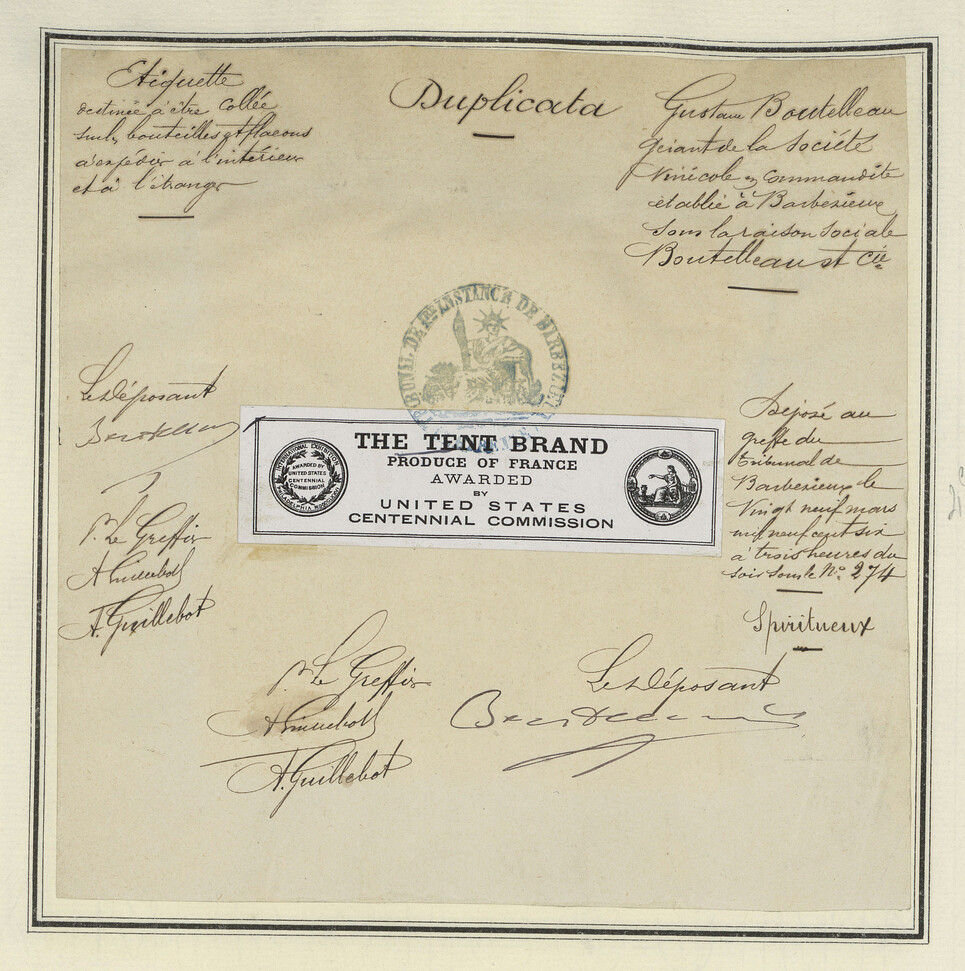 Etiquette
destinée à être collée
sur les bouteilles et flacons
à expédier à l'intérieur
et à l'étranger
Duplicata
Gustave Boutelleau
gérant de la Société
Vinicole en Commandite
établie à Barbezieux
sous la raison sociale
Boutelleau et Cie
TRIBUNAL DE 1ère INSTANCE DE BARBEZIEUX
Le Déposant
Boutelleau
P. Le Greffier
A Guillebot
A. Guillebot
THE TENT BRAND
PRODUCE OF FRANCE
AWARDED
BY
UNITED STATES
CENTENNIAL COMMISSION
INTERNATIONAL EXHIBITION
AWARDED BY
UNITED STATES
CENTENNIAL
COMMISSION
PHILADELPHIA
Déposé au
greffe du
tribunal de
Barbezieux le
Vingt neuf mars
mil neuf cent six
à trois heures du
soir sous le No. 274
Spiritueux
P. Le Greffier
A Guillebot
A. Guillebot
Le Déposant
Boutelleau